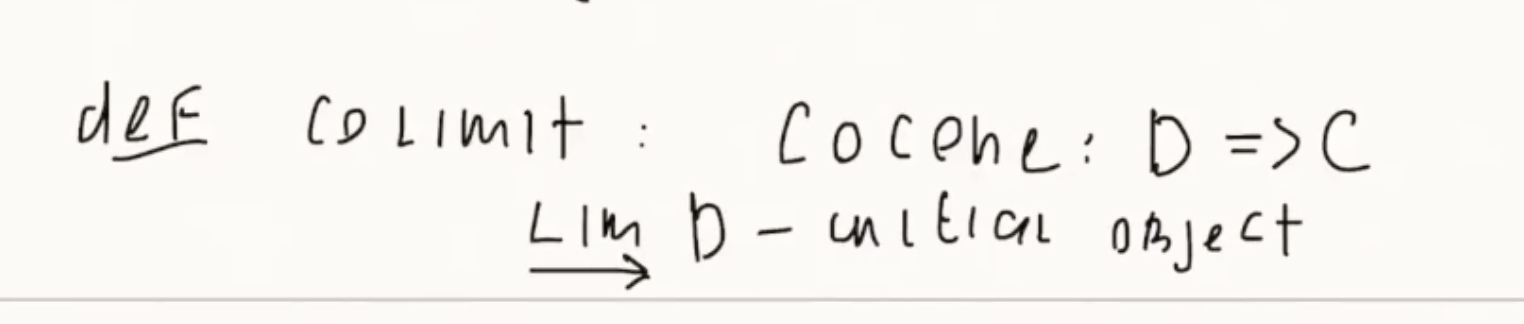 def colimit : Cocone : D => C
Lim D - initial object